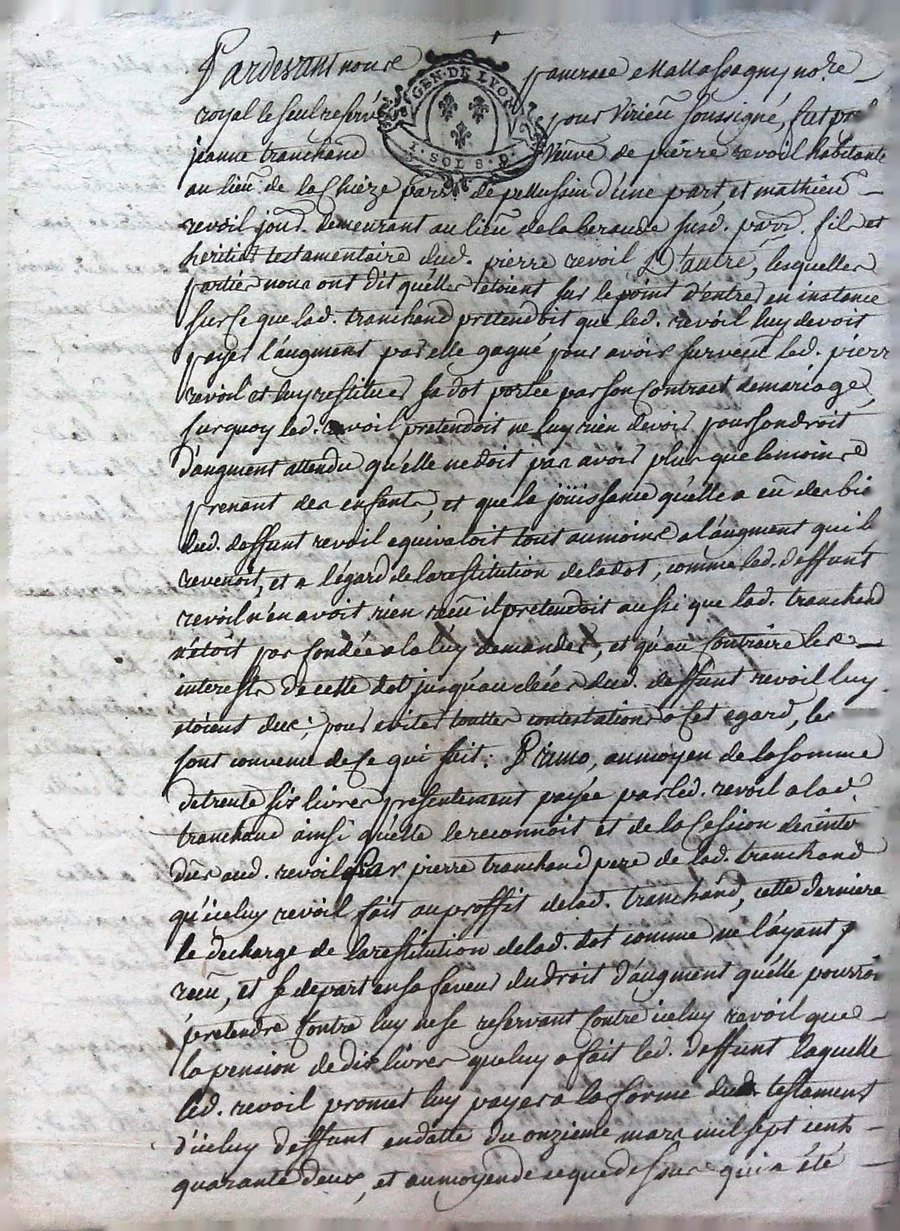 Pardevant nous
GEN · DE LYON
1 · SOL 8 · D
royal le seul reservé pour Virieu soussigné, fut
jeanne tranchand veuve de pierre revoil habitante
au lieu de la Chieze parr. de pellussin d'une part, et mathieu
revoil jour. demeurant au lieu de la beraude susd. parr. fils et
heritier testamentaire dud. pierre revoil D'autre, lesquelles
parties nous ont dit qu'elles étoient sur le point d'entré en instance
sur ce que lad. tranchand pretendoit que led. revoil luy devoit
payer l'augment par elle gagné pour avoir surveçu led. pierre
revoil et luy restituer sa dot portée par son contract de mariage,
surquoy led. revoil pretendoit ne luy rien devoir pour son droit
d'augment attendu qu'elle ne doit pas avoir plus que le moins
prenant des enfants, et que la jouissance qu'elle a eu des bie
dud. deffunt revoil equivaloit tout au moins a l'augment qui l
revenoit, et a l'égard de la restitution de la dot, comme led. deffunt
revoil n'en avoit rien reçu il pretendoit aussi que lad. tranchand
n'etoit pas fondée a la luy demander, et qu'au contraire les
interests de cette dot jusqu'au décés dud. deffunt revoil luy
étoient dus. pour eviter touttes contestations a cet egard, les
sont convenu de ce qui suit. Primo, au moyen de la somme
de trente six livres presentement payée par led. revoil a lad
tranchand ainsi qu'elle le reconnoit et de la cession des inter
dus aud. revoil par pierre tranchand pere de lad. tranchand
qu'iceluy revoil fait au proffit de lad. tranchand, cette derniere
le decharge de la restitution de lad. dot comme ne l'ayant
reçu, et se depart en sa faveur du droit d'augment qu'elle pourroi
pretendre contre luy ne se reservant contre iceluy revoil que
la pension de dix livres que luy a fait led. deffunt laquelle
led. revoil promet luy payer a la forme dud. testament
d'iceluy deffunt en datte du onzieme mars mil sept cent
quarante deux, et au moyen de ce que dessus qui a été